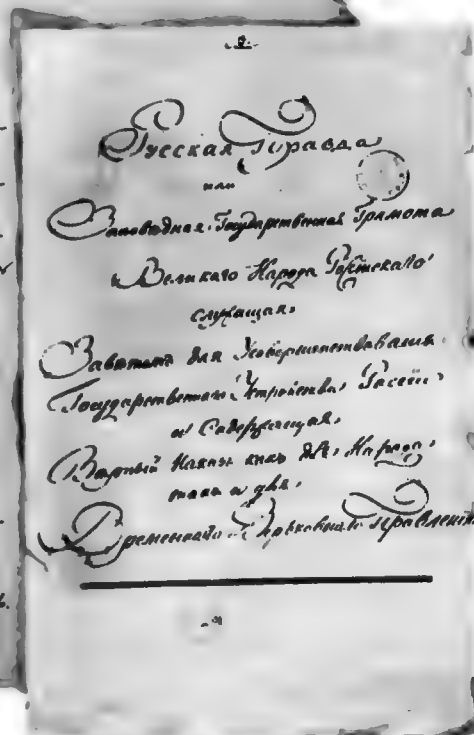 Русская Правда
или
Заповедная Государственная Грамота
Великаго Народа Российскаго
служащая
Заветомъ для Усовершенствования
Государственнаго Устройства России
и Содержащая
Верный Наказъ какъ для Народа
такъ и для
Временнаго Верховнаго Правления